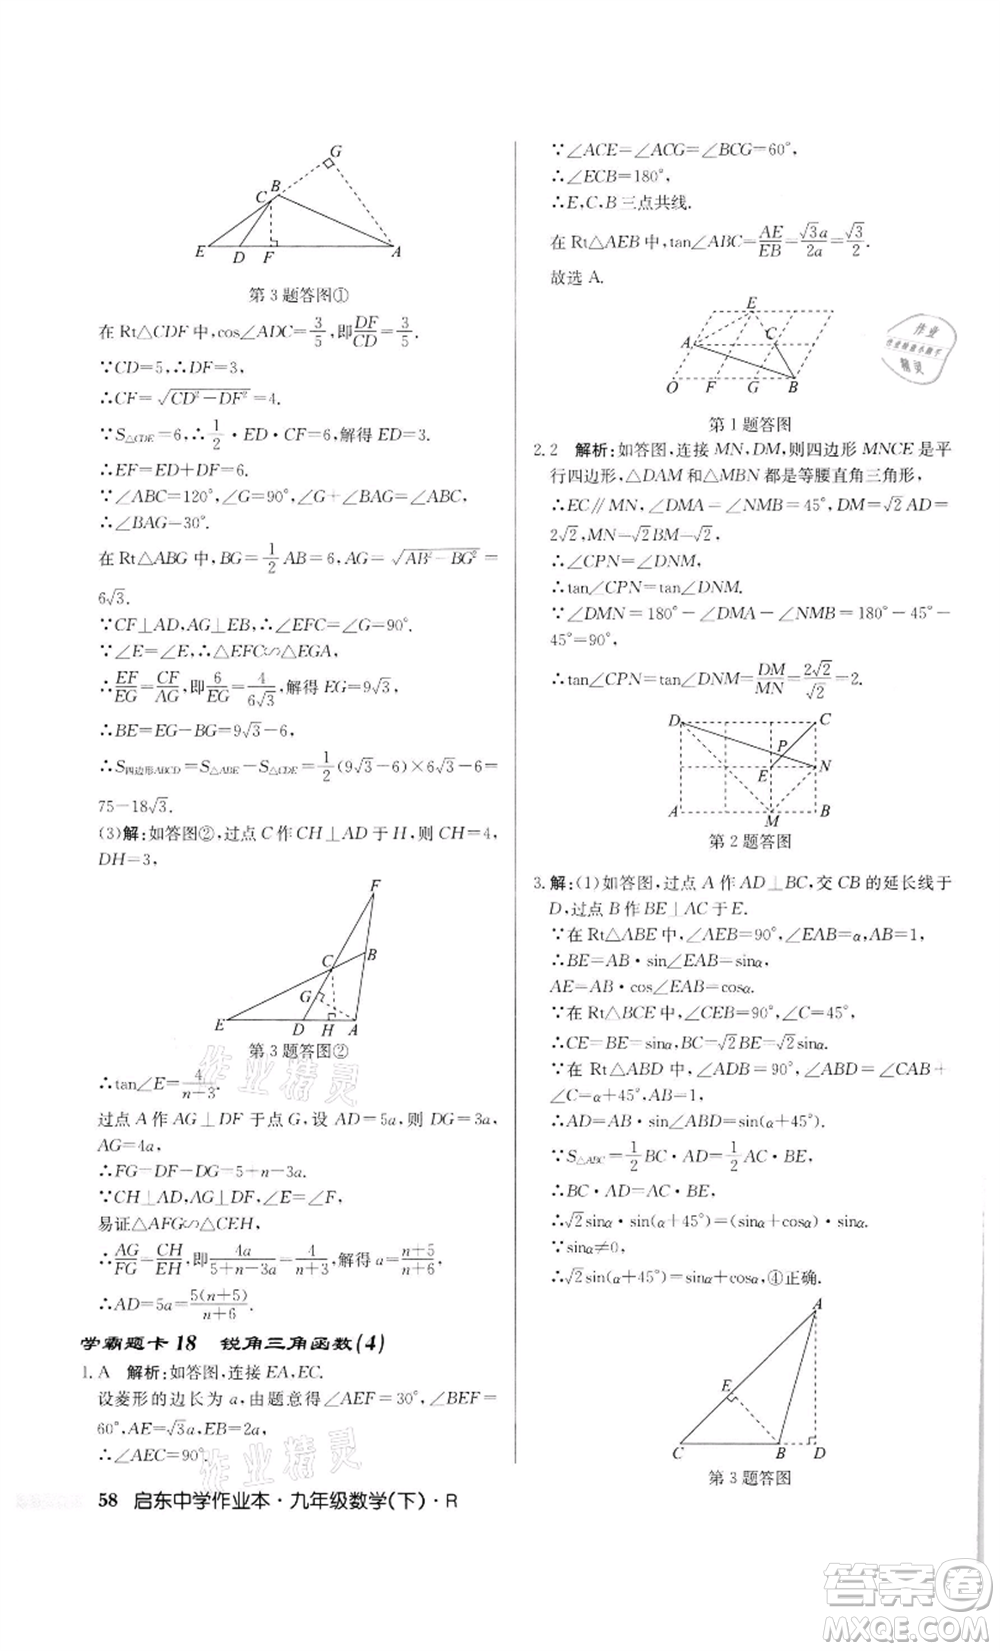 G
B
C
E D F A
第 3 题答图①
在 Rt△CDF 中,cos∠ADC=3/5,即DF/CD=3/5.
∵CD=5,∴DF=3,
∴CF=√(CD²-DF²)=4.
∵S△CDE=6,∴1/2·ED·CF=6,解得 ED=3.
∴EF=ED+DF=6.
∵∠ABC=120°,∠G=90°,∠G+∠BAG=∠ABC,
∴∠BAG=30°.
在 Rt△ABG 中,BG=1/2AB=6,AG=√(AB²-BG²)=
6√3.
∵CF⊥AD,AG⊥EB,∴∠EFC=∠G=90°.
∵∠E=∠E,∴△EFC∽△EGA,
∴EF/EG=CF/AG,即6/EG=4/6√3,解得 EG=9√3,
∴BE=EG-BG=9√3-6,
∴S四边形ABCD=S△ABE-S△CDE=1/2(9√3-6)×6√3-6=
75-18√3.
(3)解:如答图②,过点 C 作 CH⊥AD 于 H,则 CH=4,
DH=3,
F
C B
G
E D H A
第 3 题答图②
∴tan∠E=4/(n+3).
过点 A 作 AG⊥DF 于点 G,设 AD=5a,则 DG=3a,
AG=4a,
∴FG=DF-DG=5+n-3a.
∵CH⊥AD,AG⊥DF,∠E=∠F,
易证△AFG∽△CEH,
∴AG/FG=CH/EH,即4a/(5+n-3a)=4/(n+3),解得 a=(n+5)/(n+6),
∴AD=5(n+5)/(n+6).
学霸题卡 18 锐角三角函数(4)
1. A 解析:如答图,连接 EA,EC.
设菱形的边长为 a,由题意得∠AEF=30°,∠BEF=
60°,AE=√3a,EB=2a,
∴∠AEC=90°.
∵∠ACE=∠ACG=∠BCG=60°,
∴∠ECB=180°,
∴E,C,B 三点共线.
在 Rt△AEB 中,tan∠ABC=AE/EB=√3a/2a=√3/2.
故选 A.
E
A C
O F G B
第 1 题答图
2. 2 解析:如答图,连接 MN,DM,则四边形 MNCE 是平
行四边形,△DAM 和△MBN 都是等腰直角三角形,
∴EC∥MN,∠DMA=∠NMB=45°,DM=√2AD=
2√2,MN=√2,
∴∠CPN=∠DNM,
∴tan∠CPN=tan∠DNM.
∵∠DMN=180°-∠DMA-∠NMB=180°-45°-
45°=90°,
∴tan∠CPN=tan∠DNM=DM/MN=2√2/√2=2.
D C
P
E N
A M B
第 2 题答图
3. 解:(1)如答图,过点 A 作 AD⊥BC,交 CB 的延长线于
D,过点 B 作 BE⊥AC 于 E.
∵在 Rt△ABE 中,∠AEB=90°,∠EAB=α,AB=1,
∴BE=AB·sin∠EAB=sinα,
AE=AB·cos∠EAB=cosα.
∵在 Rt△BCE 中,∠CEB=90°,∠C=45°,
∴CE=BE=sinα,BC=√2BE=√2sinα.
∵在 Rt△ADB 中,∠D=90°,∠ABD=∠CAB+∠C=
α+45°,AB=1,
∴AD=AB·sin∠ABD=sin(α+45°).
∵S△ABC=1/2BC·AD=1/2AC·BE,
∴BC·AD=AC·BE,
∴√2sinα·sin(α+45°)=(sinα+cosα)·sinα.
∵sinα≠0,
∴√2sin(α+45°)=sinα+cosα,④正确.
A
E
C B D
第 3 题答图
58 启东中学作业本·九年级数学(下)·R
作业精灵
作业精灵
作业
精灵
答案圈
MXQE.COM